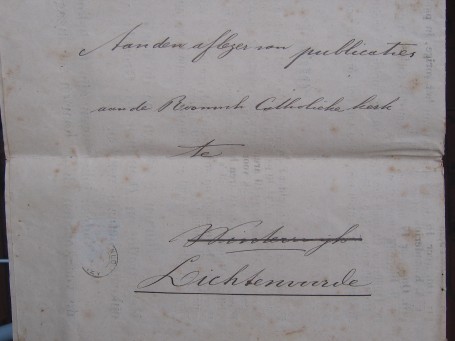 Aan den aflezer van publicaties
aan de Roomsch Catholieke kerk
te
Lichtenvoorde